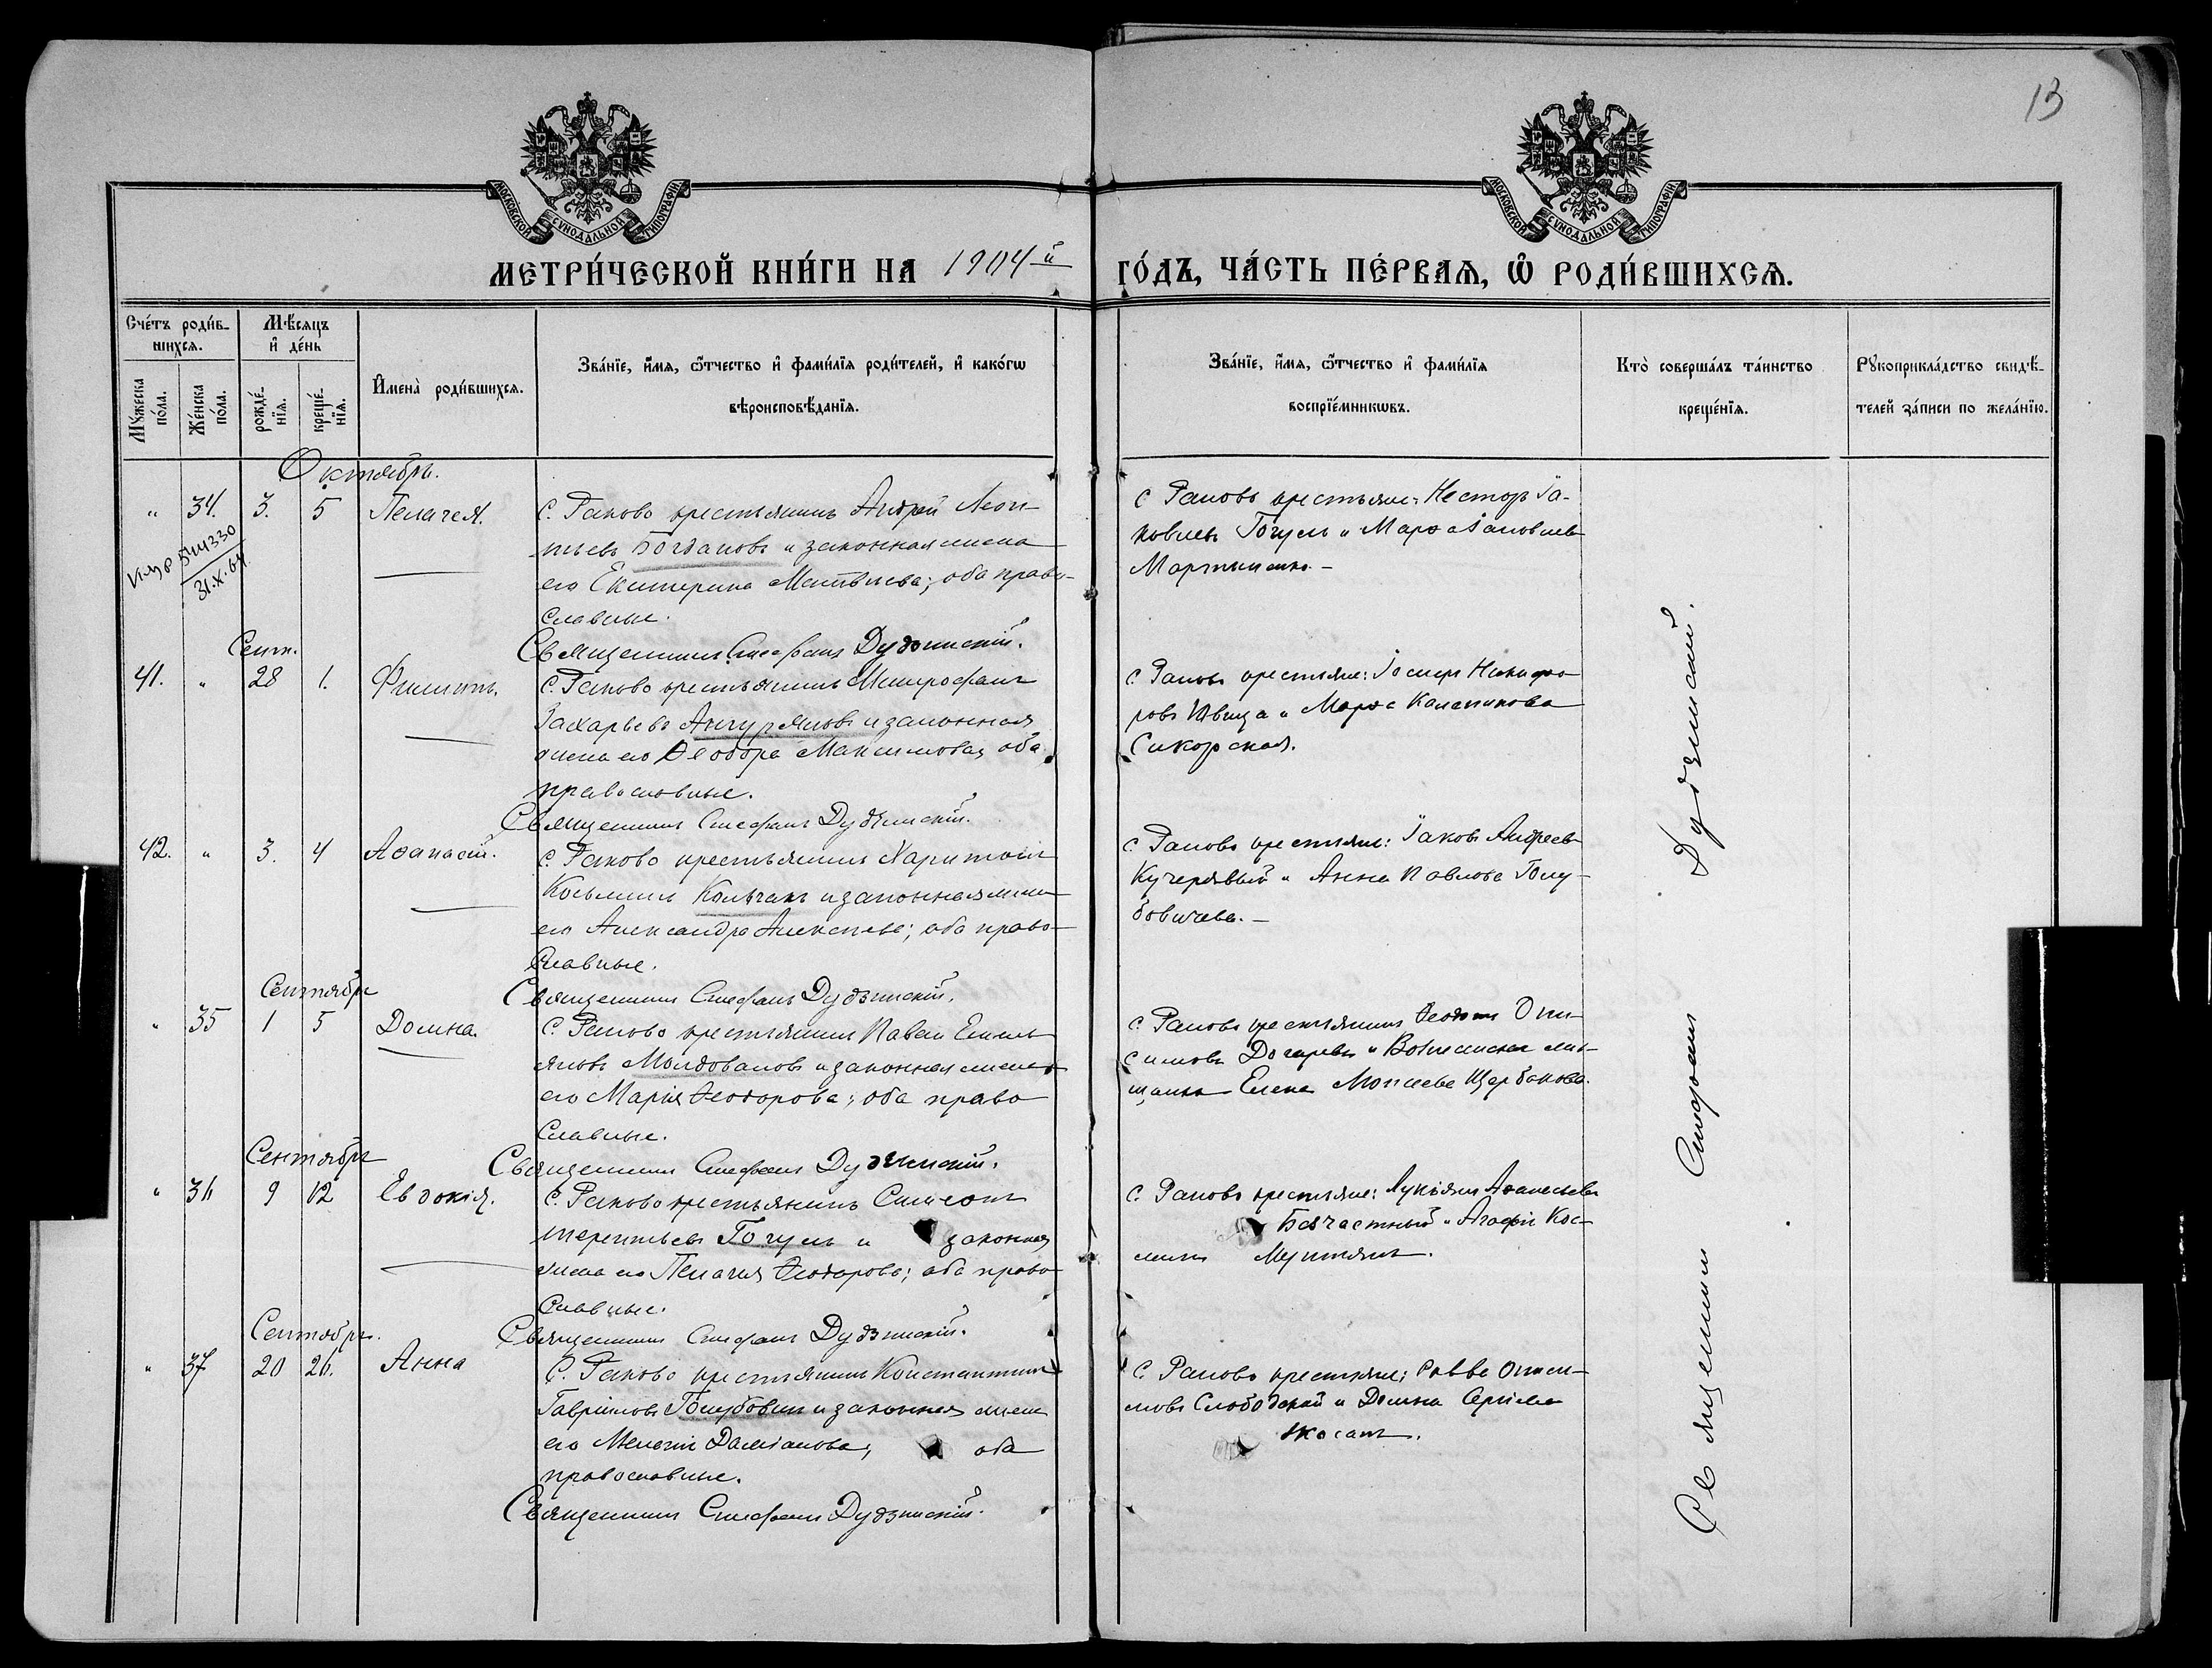 13
МОСКОВСКОЙ СУНОДАЛЬНОЙ ТИПОГРАФІИ
МОСКОВСКОЙ СУНОДАЛЬНОЙ ТИПОГРАФІИ
МЕТРИ́ЧЕСКОЙ КНИ́ГИ НА 1904й ГО́ДЪ, ЧА́СТЬ ПЕ́РВАѦ, Ѿ РОДИ́ВШИХСѦ.
Сче́тъ роди́в-
шихсѧ.
Мѣ́сѧцъ
и҆ де́нь
Мꙋ́жеска
по́ла.
Же́нска
по́ла.
рожде́-
нїѧ.
креще́-
нїѧ.
И҆мена̀ роди́вшихсѧ.
Зва́нїе, и҆́мѧ, ѻ҆́тчество и҆ фами́лїѧ роди́телей, и҆ како́гѡ
вѣроисповѣ́данїѧ.
Зва́нїе, и҆́мѧ, ѻ҆́тчество и҆ фами́лїѧ
воспрїе́мникѡвъ.
Кто̀ соверша́лъ та́инство
креще́нїѧ.
Рꙋкоприкла́дство свидѣ́-
телей за́писи по жела́нїю.
Октябрь.
" 34. 3. 5 Пелагея.
31.X.64
С. Раково крестьянинъ Андрей Леон-
тьевъ Богдановъ и законная жена
его Екатерина Матвѣева; оба право-
славные.
Священникъ Стефанъ Дудзинскій.
с Раково крестьяне: Несторъ Іа-
ковлевъ Гогуль и Марѳа Іаковлева
Мартыненко. –
Сент.
41. " 28 1. Филиппъ.
С. Раково крестьянинъ Митрофанъ
Захарьевъ и законная
жена его Ѳеодора Максимова, оба
православные.
Священникъ Стефанъ Дудзинскій.
с. Раково крестьяне: Іосифъ Никифо-
ровъ и Марѳа
Сикорская.
42. " 3. 4 Аѳанасій.
с. Раково крестьянинъ Харитонъ
Косьминъ Колѣчакъ и законная жена
его Александра Алексѣева; оба право-
славные.
Священникъ Стефанъ Дудзинскій.
с. Раково крестьяне: Іаковъ Андреевъ
Кучерявый и Анна Павлова Голу-
бовичева. –
Сентябрь
" 35 1 5 Домна.
С. Раково крестьянинъ Павелъ Емель-
яновъ Молдовановъ и законная жена
его Марія Ѳеодорова; оба право
славные.
Священникъ Стефанъ Дудзинскій.
с. Раково крестьянинъ Ѳеодоръ Они-
симовъ и Вознесенская мѣ-
щанка Елена Моисеева Щербакова.
Сентябрь
" 36 9 12 Евдокія.
С. Раково крестьянинъ Симеонъ
Терентьевъ Гогуль и законная
жена его Пелагія Ѳеодорова; оба право
славные.
Священникъ Стефанъ Дудзинскій.
с. Раково крестьяне: Лукіанъ Аѳанасьевъ
Безчастный и Агафія Кос-
мина Мунтянъ.
Сентябрь.
" 37 20 26. Анна
С. Раково крестьянинъ Константинъ
Гавриловъ Голубовичъ и законная жена
его Меланія Даміанова, оба
православные.
Священникъ Стефанъ Дудзинскій.
с Раково крестьяне: СавваОниси-
мовъ Слободской и Домна
Священникъ Стефанъ Дудзинскій.